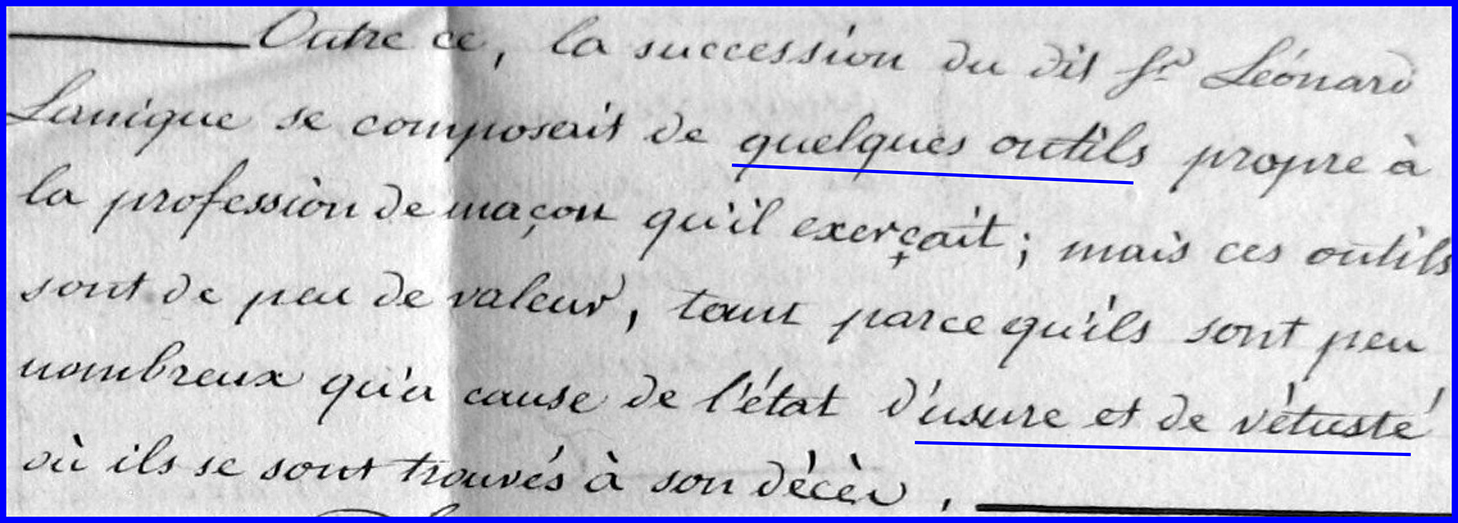 Outre ce, la succession du dit Sr Léonard
Lanique se composait de quelques outils propre à
la profession de maçon qu'il exerçait ; mais ces outils
sont de peu de valeur, tant parce qu'ils sont peu
nombreux qu'a cause de l'état d'usure et de vétusté
où ils se sont trouvés à son décès,